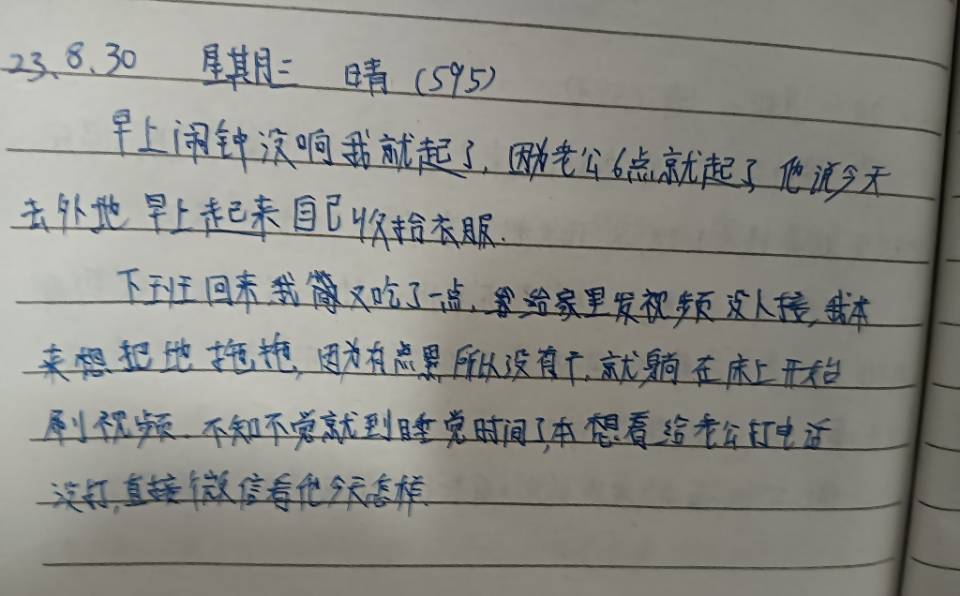 23.8.30 星期三 晴 (595)
早上闹钟没响我就起了，因为老公6点就起了 他说今天
去外地 早上起来自己收拾衣服.
下班回来我又吃了一点，给家里发视频没人接，我本
来想把地拖拖，因为有点累所以没有干，就躺在床上开始
刷视频.不知不觉就到睡觉时间了，本想着给老公打电话
没打，直接微信看他今天怎样.